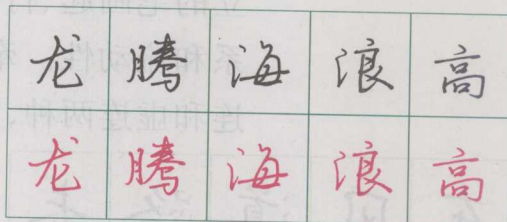 龙腾海浪高
龙腾海浪高